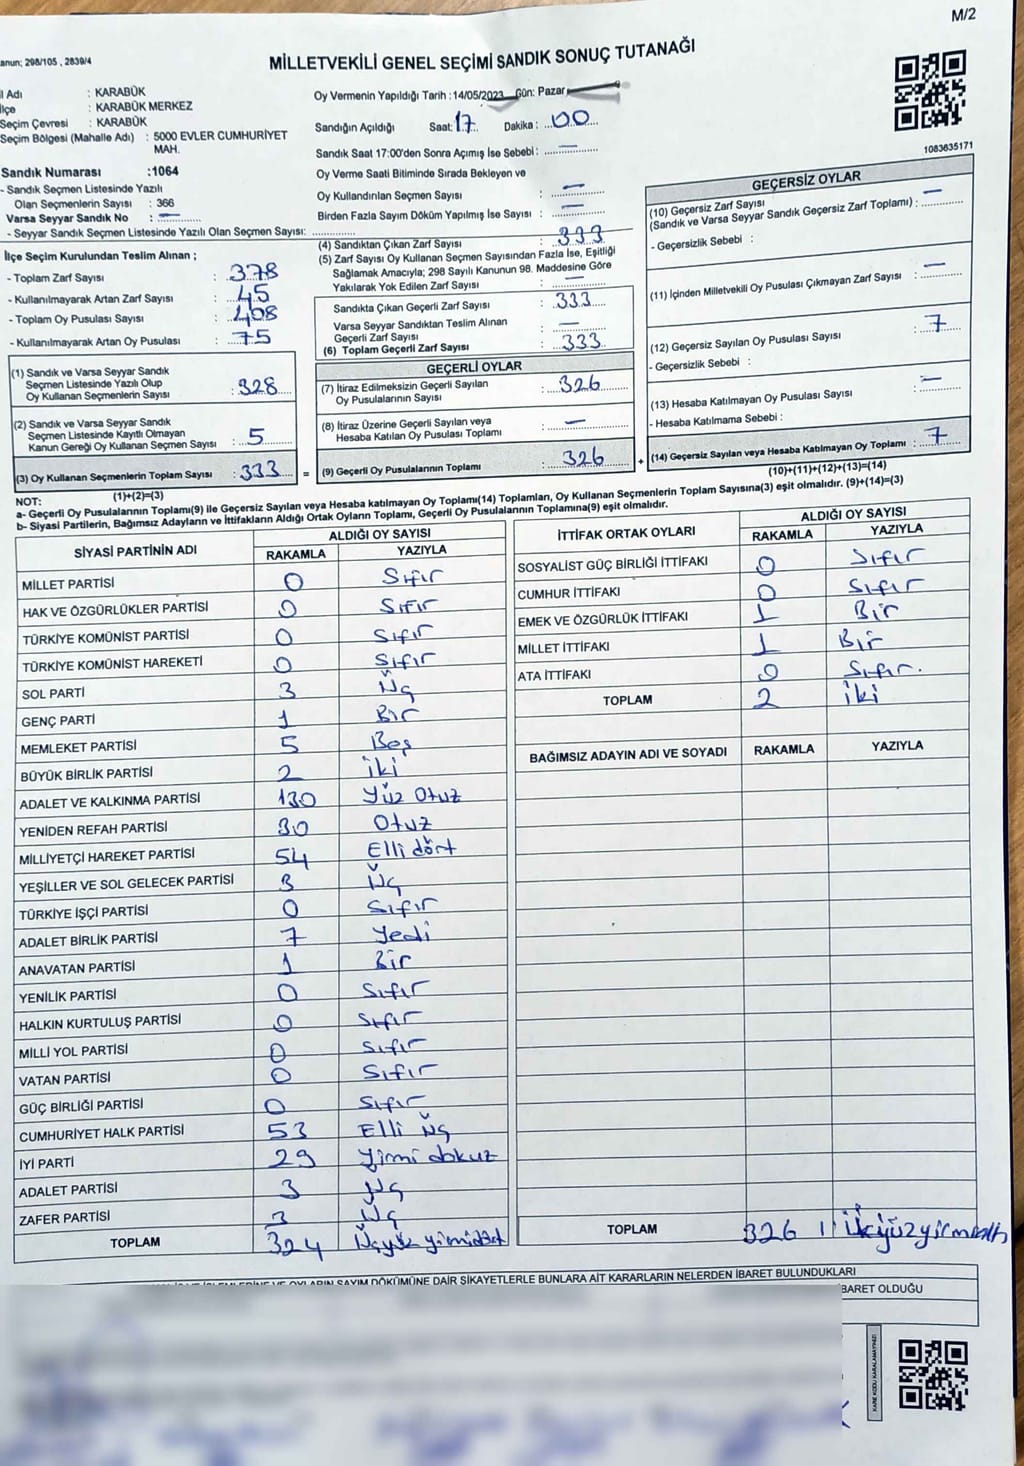 M/2
anun; 298/105 , 2839/4
MİLLETVEKİLİ GENEL SEÇİMİ SANDIK SONUÇ TUTANAĞI
l Adı : KARABÜK
lçe : KARABÜK MERKEZ
Seçim Çevresi : KARABÜK
Seçim Bölgesi (Mahalle Adı) : 5000 EVLER CUMHURİYET
MAH.
Sandık Numarası :1064
- Sandık Seçmen Listesinde Yazılı
Olan Seçmenlerin Sayısı : 366
Varsa Seyyar Sandık No : —
- Seyyar Sandık Seçmen Listesinde Yazılı Olan Seçmen Sayısı:
Oy Vermenin Yapıldığı Tarih : 14/05/2023 Gün: Pazar
Sandığın Açıldığı Saat: 17 Dakika : 00
Sandık Saat 17:00'den Sonra Açımış İse Sebebi : —
Oy Verme Saati Bitiminde Sırada Bekleyen ve
Oy Kullandırılan Seçmen Sayısı : —
Birden Fazla Sayım Döküm Yapılmış İse Sayısı : —
1083635171
İlçe Seçim Kurulundan Teslim Alınan ;
- Toplam Zarf Sayısı : 378
- Kullanılmayarak Artan Zarf Sayısı : 45
- Toplam Oy Pusulası Sayısı : 408
- Kullanılmayarak Artan Oy Pusulası : 75
(1) Sandık ve Varsa Seyyar Sandık
Seçmen Listesinde Yazılı Olup
Oy Kullanan Seçmenlerin Sayısı : 328
(2) Sandık ve Varsa Seyyar Sandık
Seçmen Listesinde Kayıtlı Olmayan
Kanun Gereği Oy Kullanan Seçmen Sayısı : 5
(3) Oy Kullanan Seçmenlerin Toplam Sayısı : 333 =
(1)+(2)=(3)
(4) Sandıktan Çıkan Zarf Sayısı : 333
(5) Zarf Sayısı Oy Kullanan Seçmen Sayısından Fazla İse, Eşitliği
Sağlamak Amacıyla; 298 Sayılı Kanunun 98. Maddesine Göre
Yakılarak Yok Edilen Zarf Sayısı : —
Sandıkta Çıkan Geçerli Zarf Sayısı : 333
Varsa Seyyar Sandıktan Teslim Alınan
Geçerli Zarf Sayısı : —
(6) Toplam Geçerli Zarf Sayısı : 333
GEÇERLİ OYLAR
(7) İtiraz Edilmeksizin Geçerli Sayılan
Oy Pusulalarının Sayısı : 326
(8) İtiraz Üzerine Geçerli Sayılan veya
Hesaba Katılan Oy Pusulası Toplamı : —
(9) Geçerli Oy Pusulalarının Toplamı : 326 +
GEÇERSİZ OYLAR
(10) Geçersiz Zarf Sayısı
(Sandık ve Varsa Seyyar Sandık Geçersiz Zarf Toplamı) : —
- Geçersizlik Sebebi :
(11) İçinden Milletvekili Oy Pusulası Çıkmayan Zarf Sayısı : —
(12) Geçersiz Sayılan Oy Pusulası Sayısı : 7
- Geçersizlik Sebebi :
(13) Hesaba Katılmayan Oy Pusulası Sayısı : —
- Hesaba Katılmama Sebebi :
(14) Geçersiz Sayılan veya Hesaba Katılmayan Oy Toplamı : 7
(10)+(11)+(12)+(13)=(14)
NOT:
a- Geçerli Oy Pusulalarının Toplamı(9) ile Geçersiz Sayılan veya Hesaba katılmayan Oy Toplamı(14) Toplamları, Oy Kullanan Seçmenlerin Toplam Sayısına(3) eşit olmalıdır. (9)+(14)=(3)
b- Siyasi Partilerin, Bağımsız Adayların ve İttifakların Aldığı Ortak Oyların Toplamı, Geçerli Oy Pusulalarının Toplamına(9) eşit olmalıdır.
SİYASİ PARTİNİN ADI ALDIĞI OY SAYISI
RAKAMLA YAZIYLA
MİLLET PARTİSİ 0 Sıfır
HAK VE ÖZGÜRLÜKLER PARTİSİ 0 Sıfır
TÜRKİYE KOMÜNİST PARTİSİ 0 Sıfır
TÜRKİYE KOMÜNİST HAREKETİ 0 Sıfır
SOL PARTİ 3 Üç
GENÇ PARTİ 1 Bir
MEMLEKET PARTİSİ 5 Beş
BÜYÜK BİRLİK PARTİSİ 2 iki
ADALET VE KALKINMA PARTİSİ 130 Yüz Otuz
YENİDEN REFAH PARTİSİ 30 Otuz
MİLLİYETÇİ HAREKET PARTİSİ 54 Elli dört
YEŞİLLER VE SOL GELECEK PARTİSİ 3 Üç
TÜRKİYE İŞÇİ PARTİSİ 0 Sıfır
ADALET BİRLİK PARTİSİ 7 Yedi
ANAVATAN PARTİSİ 1 Bir
YENİLİK PARTİSİ 0 Sıfır
HALKIN KURTULUŞ PARTİSİ 0 Sıfır
MİLLİ YOL PARTİSİ 0 Sıfır
VATAN PARTİSİ 0 Sıfır
GÜÇ BİRLİĞİ PARTİSİ 0 Sıfır
CUMHURİYET HALK PARTİSİ 53 Elli Üç
İYİ PARTİ 29 Yirmi dokuz
ADALET PARTİSİ 3 Üç
ZAFER PARTİSİ 3 Üç
TOPLAM 324 Üçyüz yirmidört
İTTİFAK ORTAK OYLARI ALDIĞI OY SAYISI
RAKAMLA YAZIYLA
SOSYALİST GÜÇ BİRLİĞİ İTTİFAKI 0 Sıfır
CUMHUR İTTİFAKI 0 Sıfır
EMEK VE ÖZGÜRLÜK İTTİFAKI 1 Bir
MİLLET İTTİFAKI 1 Bir
ATA İTTİFAKI 0 Sıfır.
TOPLAM 2 iki
BAĞIMSIZ ADAYIN ADI VE SOYADI RAKAMLA YAZIYLA
TOPLAM 326 Üçyüzyirmialtı
OYLARIN SAYIM DÖKÜMÜNE DAİR ŞİKAYETLERLE BUNLARA AİT KARARLARIN NELERDEN İBARET BULUNDUKLARI
İBARET OLDUĞU
KARE KODU KARALAMAYINIZ!